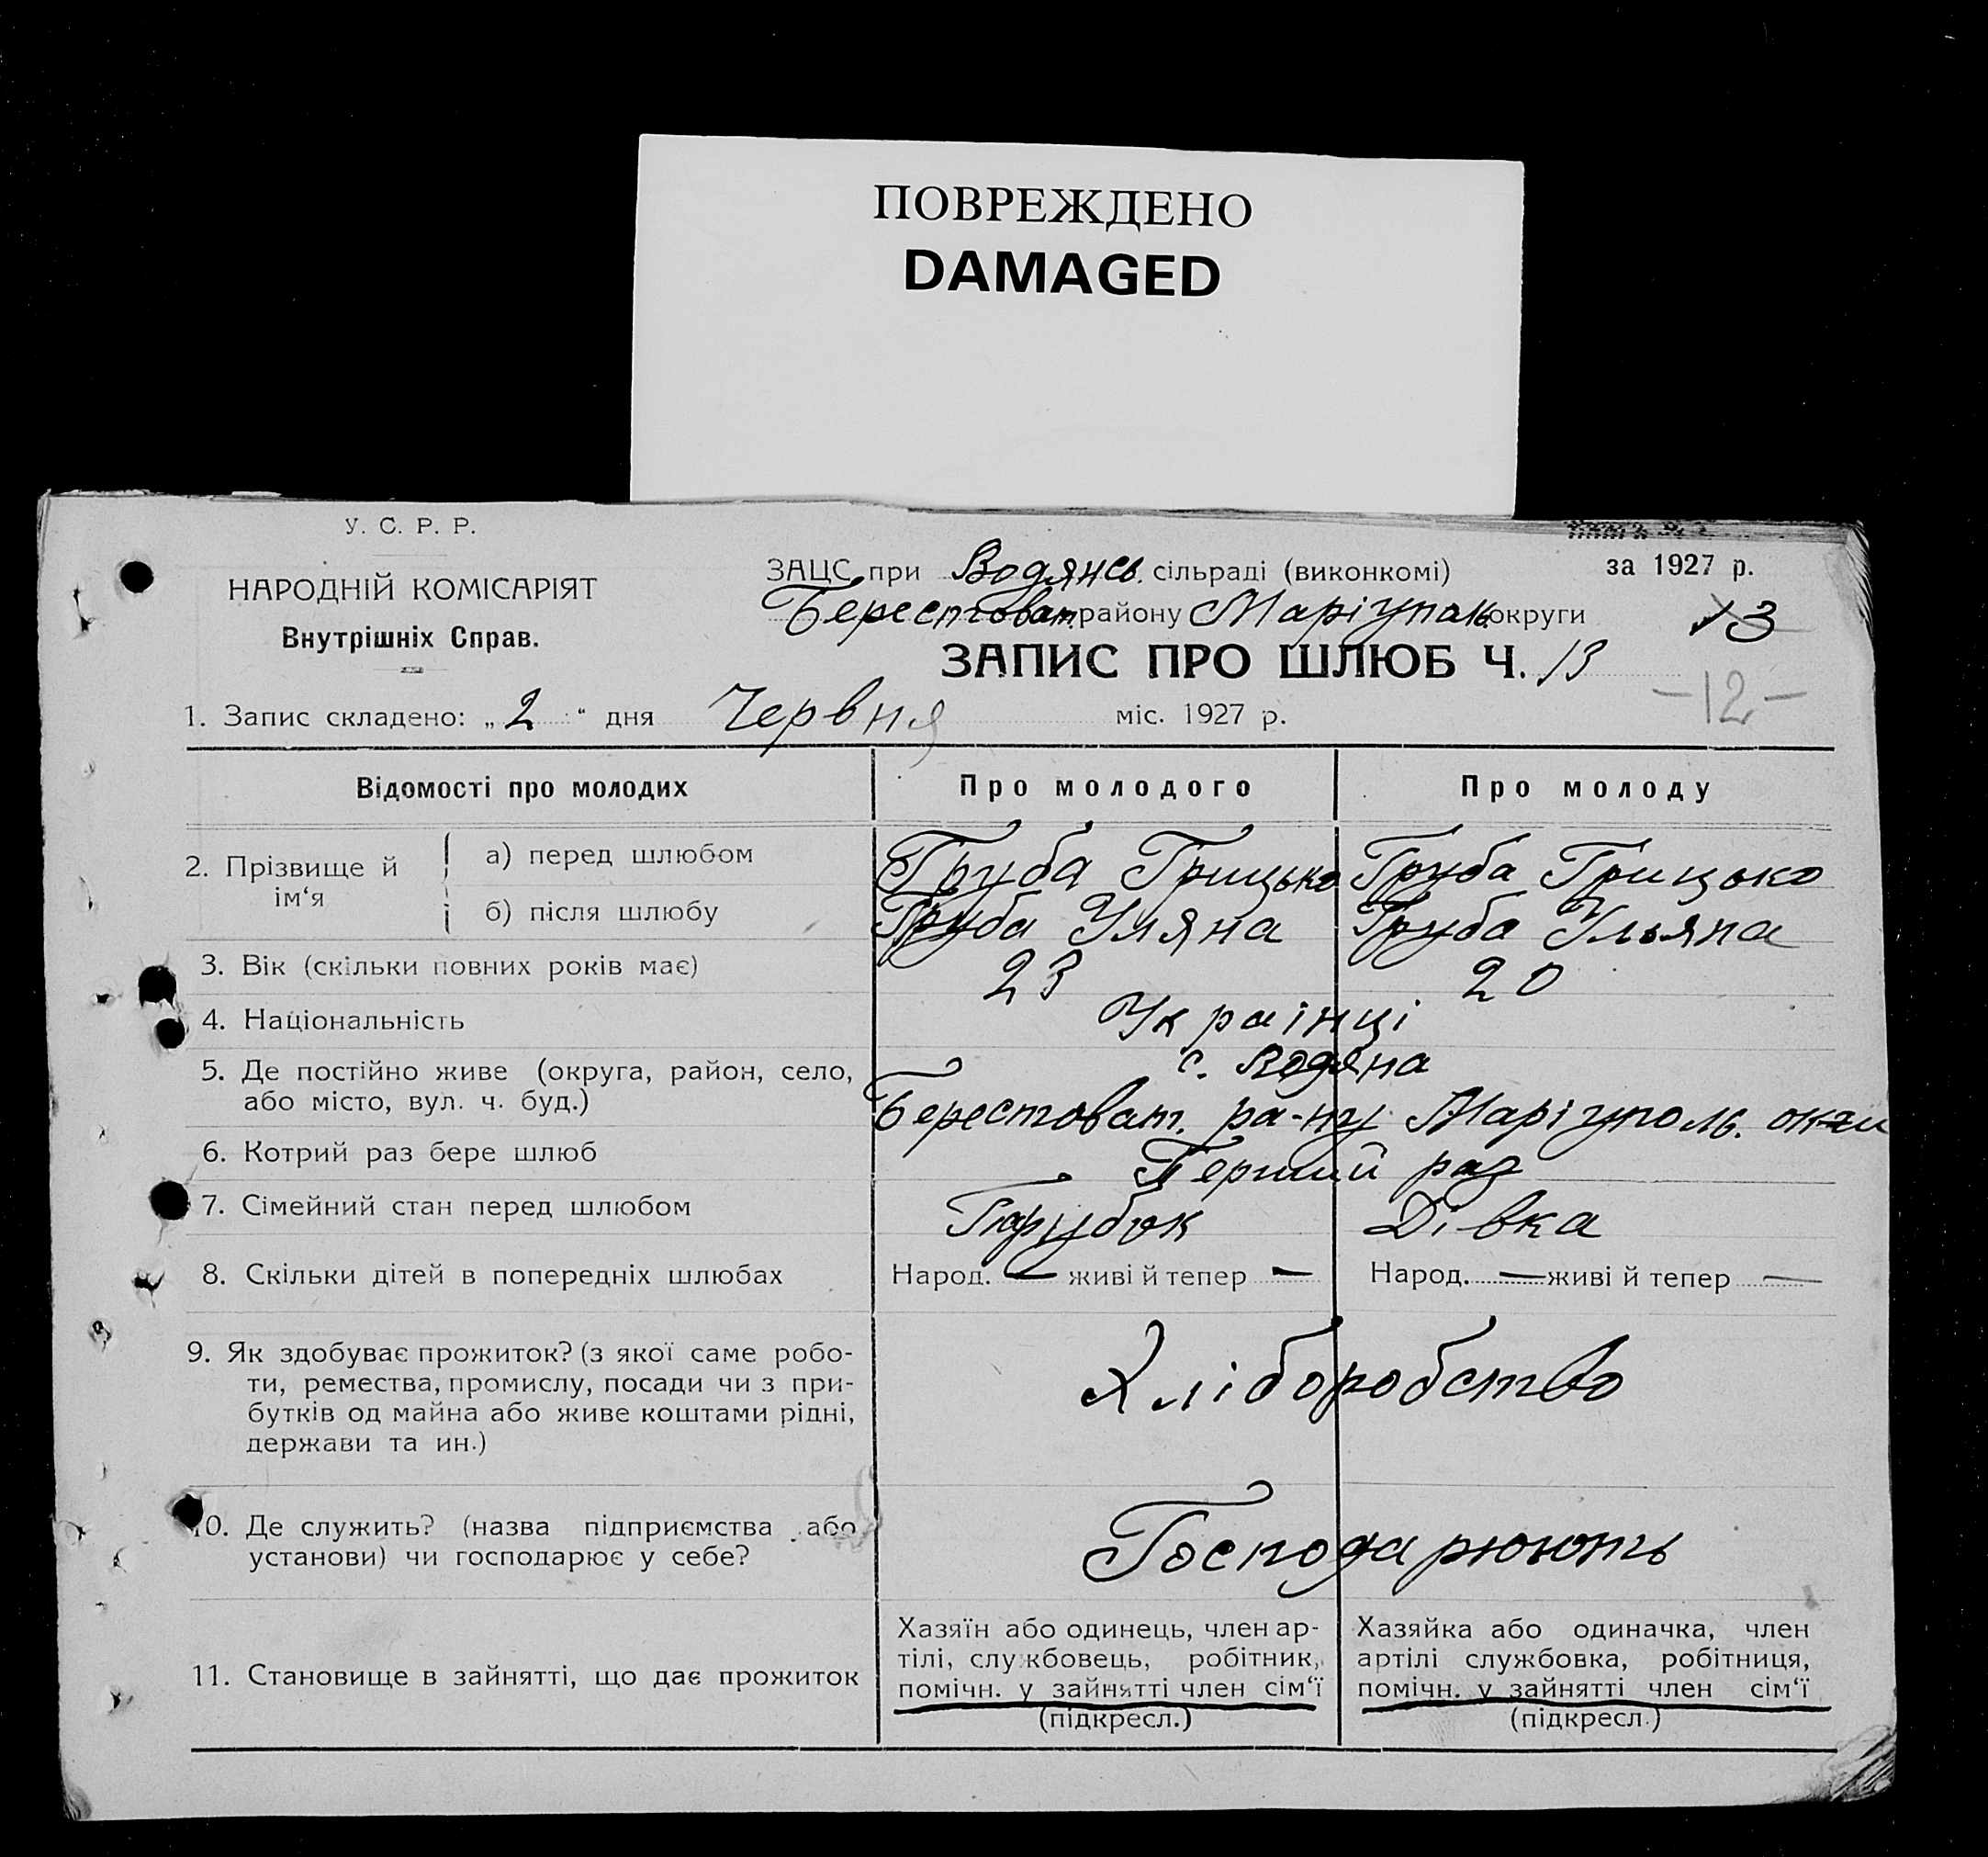 ПОВРЕЖДЕНО
DAMAGED
У. С. Р. Р.
НАРОДНІЙ КОМІСАРІЯТ
Внутрішніх Справ.
ЗАЦС при Водянсь. сільраді (виконкомі)
за 1927 р.
Берестоват. району Маріупольокруги
13
ЗАПИС ПРО ШЛЮБ Ч. 13
-12-
1. Запис складено: „2“ дня Червня міс. 1927 р.
Відомості про молодих
Про молодого
Про молоду
2. Прізвище й ім‘я
а) перед шлюбом
Груба Грицько
Груба Грицько
б) після шлюбу
Груба Уляна
Груба Ульяна
3. Вік (скільки повних років має)
23
20
4. Національність
Українці
5. Де постійно живе (округа, район, село,
або місто, вул. ч. буд.)
с. Водяна
Берестоват. ра-ну Маріуполь. ок-ги
6. Котрий раз бере шлюб
Перший раз
7. Сімейний стан перед шлюбом
Парубок
Дівка
8. Скільки дітей в попередніх шлюбах
Народ. — живі й тепер —
Народ. — живі й тепер —
9. Як здобуває прожиток? (з якої саме робо-
ти, ремества, промислу, посади чи з при-
бутків од майна або живе коштами рідні,
держави та ин.)
Хліборобство
10. Де служить? (назва підприємства або
установи) чи господарює у себе?
Господарюють
11. Становище в зайнятті, що дає прожиток
Хазяїн або одинець, член ар-
тілі, службовець, робітник,
помічн. у зайнятті член сім‘ї
(підкресл.)
Хазяйка або одиначка, член
артілі службовка, робітниця,
помічн. у зайнятті член сім‘ї
(підкресл.)